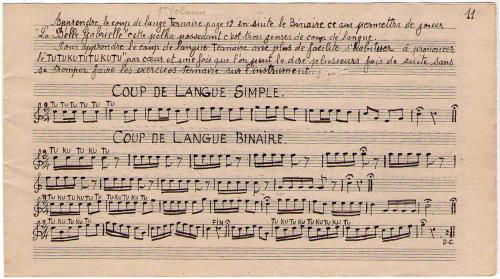 11
Apprendre le coup de langue Ternaire page 12 ensuite le Binaire ce qui permettra de jouer
"La Belle Gabrielle" cette polka possedant c'est trois genres de coup de langue.
Pour apprendre le coup de langue Ternaire avec plus de facilité s'habituer à prononcer
le "TUTUKUTUTUKUTU" par cœur et une fois que l'on peut le dire plusieurs fois de suite sans
se tromper faire les exercices ternaire sur l'instrument.
COUP DE LANGUE SIMPLE.
TU TU TU TU TU
COUP DE LANGUE BINAIRE.
TU KU TU KU TU
TU KU TU KU TU TU KU TU KU TU
TU KU TU KU TU FIN TU KU TU KU TU KU TU KU TU
D.C